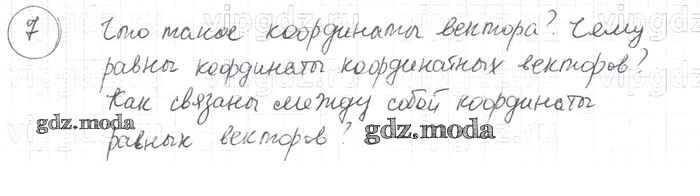 7 Что такое координаты вектора? Чему
равны координаты координатных векторов?
Как связаны между собой координаты
равных векторов?
gdz.moda
gdz.moda